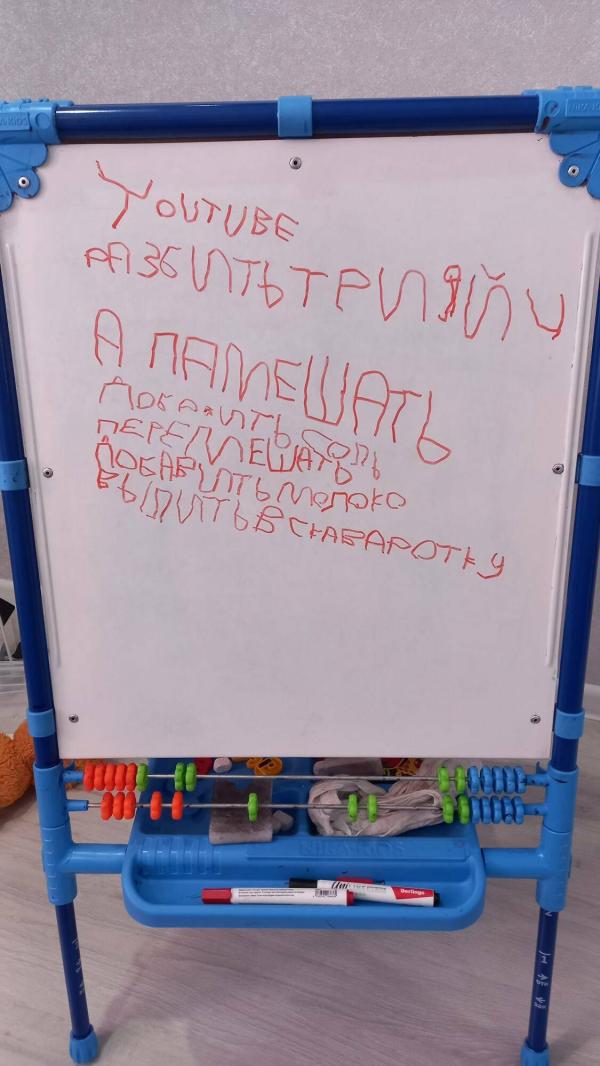 YOUTUBE
РАЗБИТЬ ТРИ ЯЙЦ
А ПАМЕШАТЬ
ДОБАВИТЬ СОЛЬ
ПЕРЕМЕШАТЬ
ДОБАВИТЬ МОЛОКО
ВЫЛИТЬ В СКАВАРОТКУ
NIKAKIDS
Berlingo